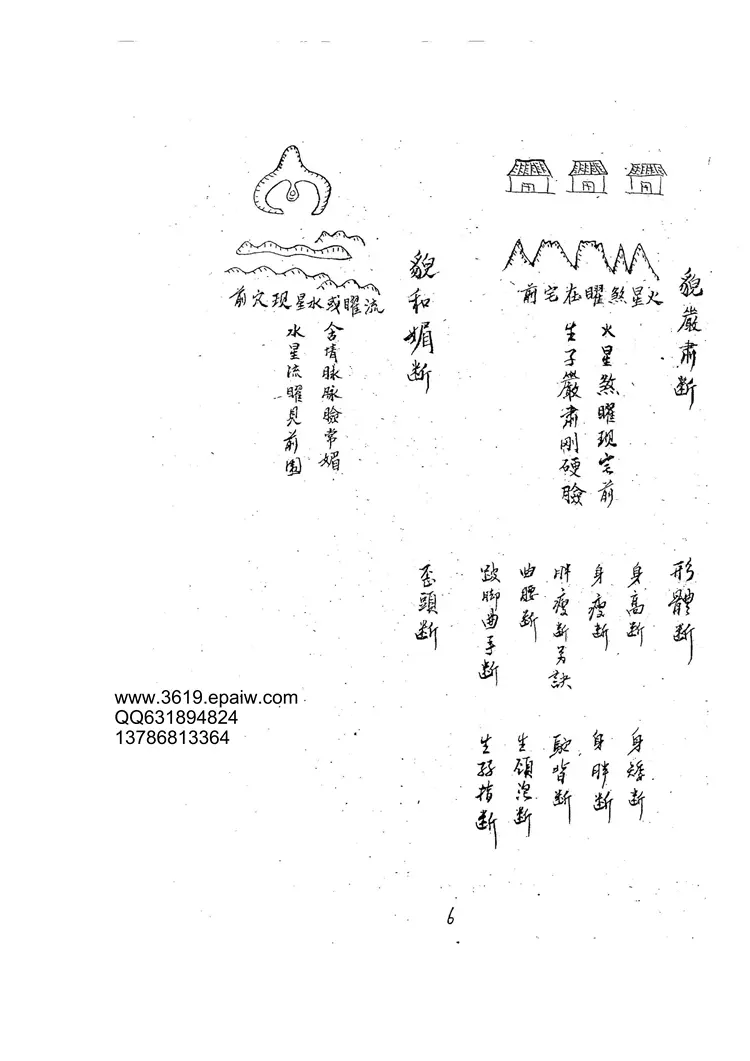 貌嚴肅断
火星煞曜在宅前
火星煞曜现宅前
生子嚴肅刚硬臉
貌和媚断
流曜或水星现穴前
含情脉脉臉常媚
水星流曜見前围
形體断
身高断
身矮断
身瘦断
身胖断
胖瘦断另訣
駝背断
曲腰断
生頷泡断
跛脚曲手断
生孖指断
歪頭断
www.3619.epaiw.com
QQ631894824
13786813364
6